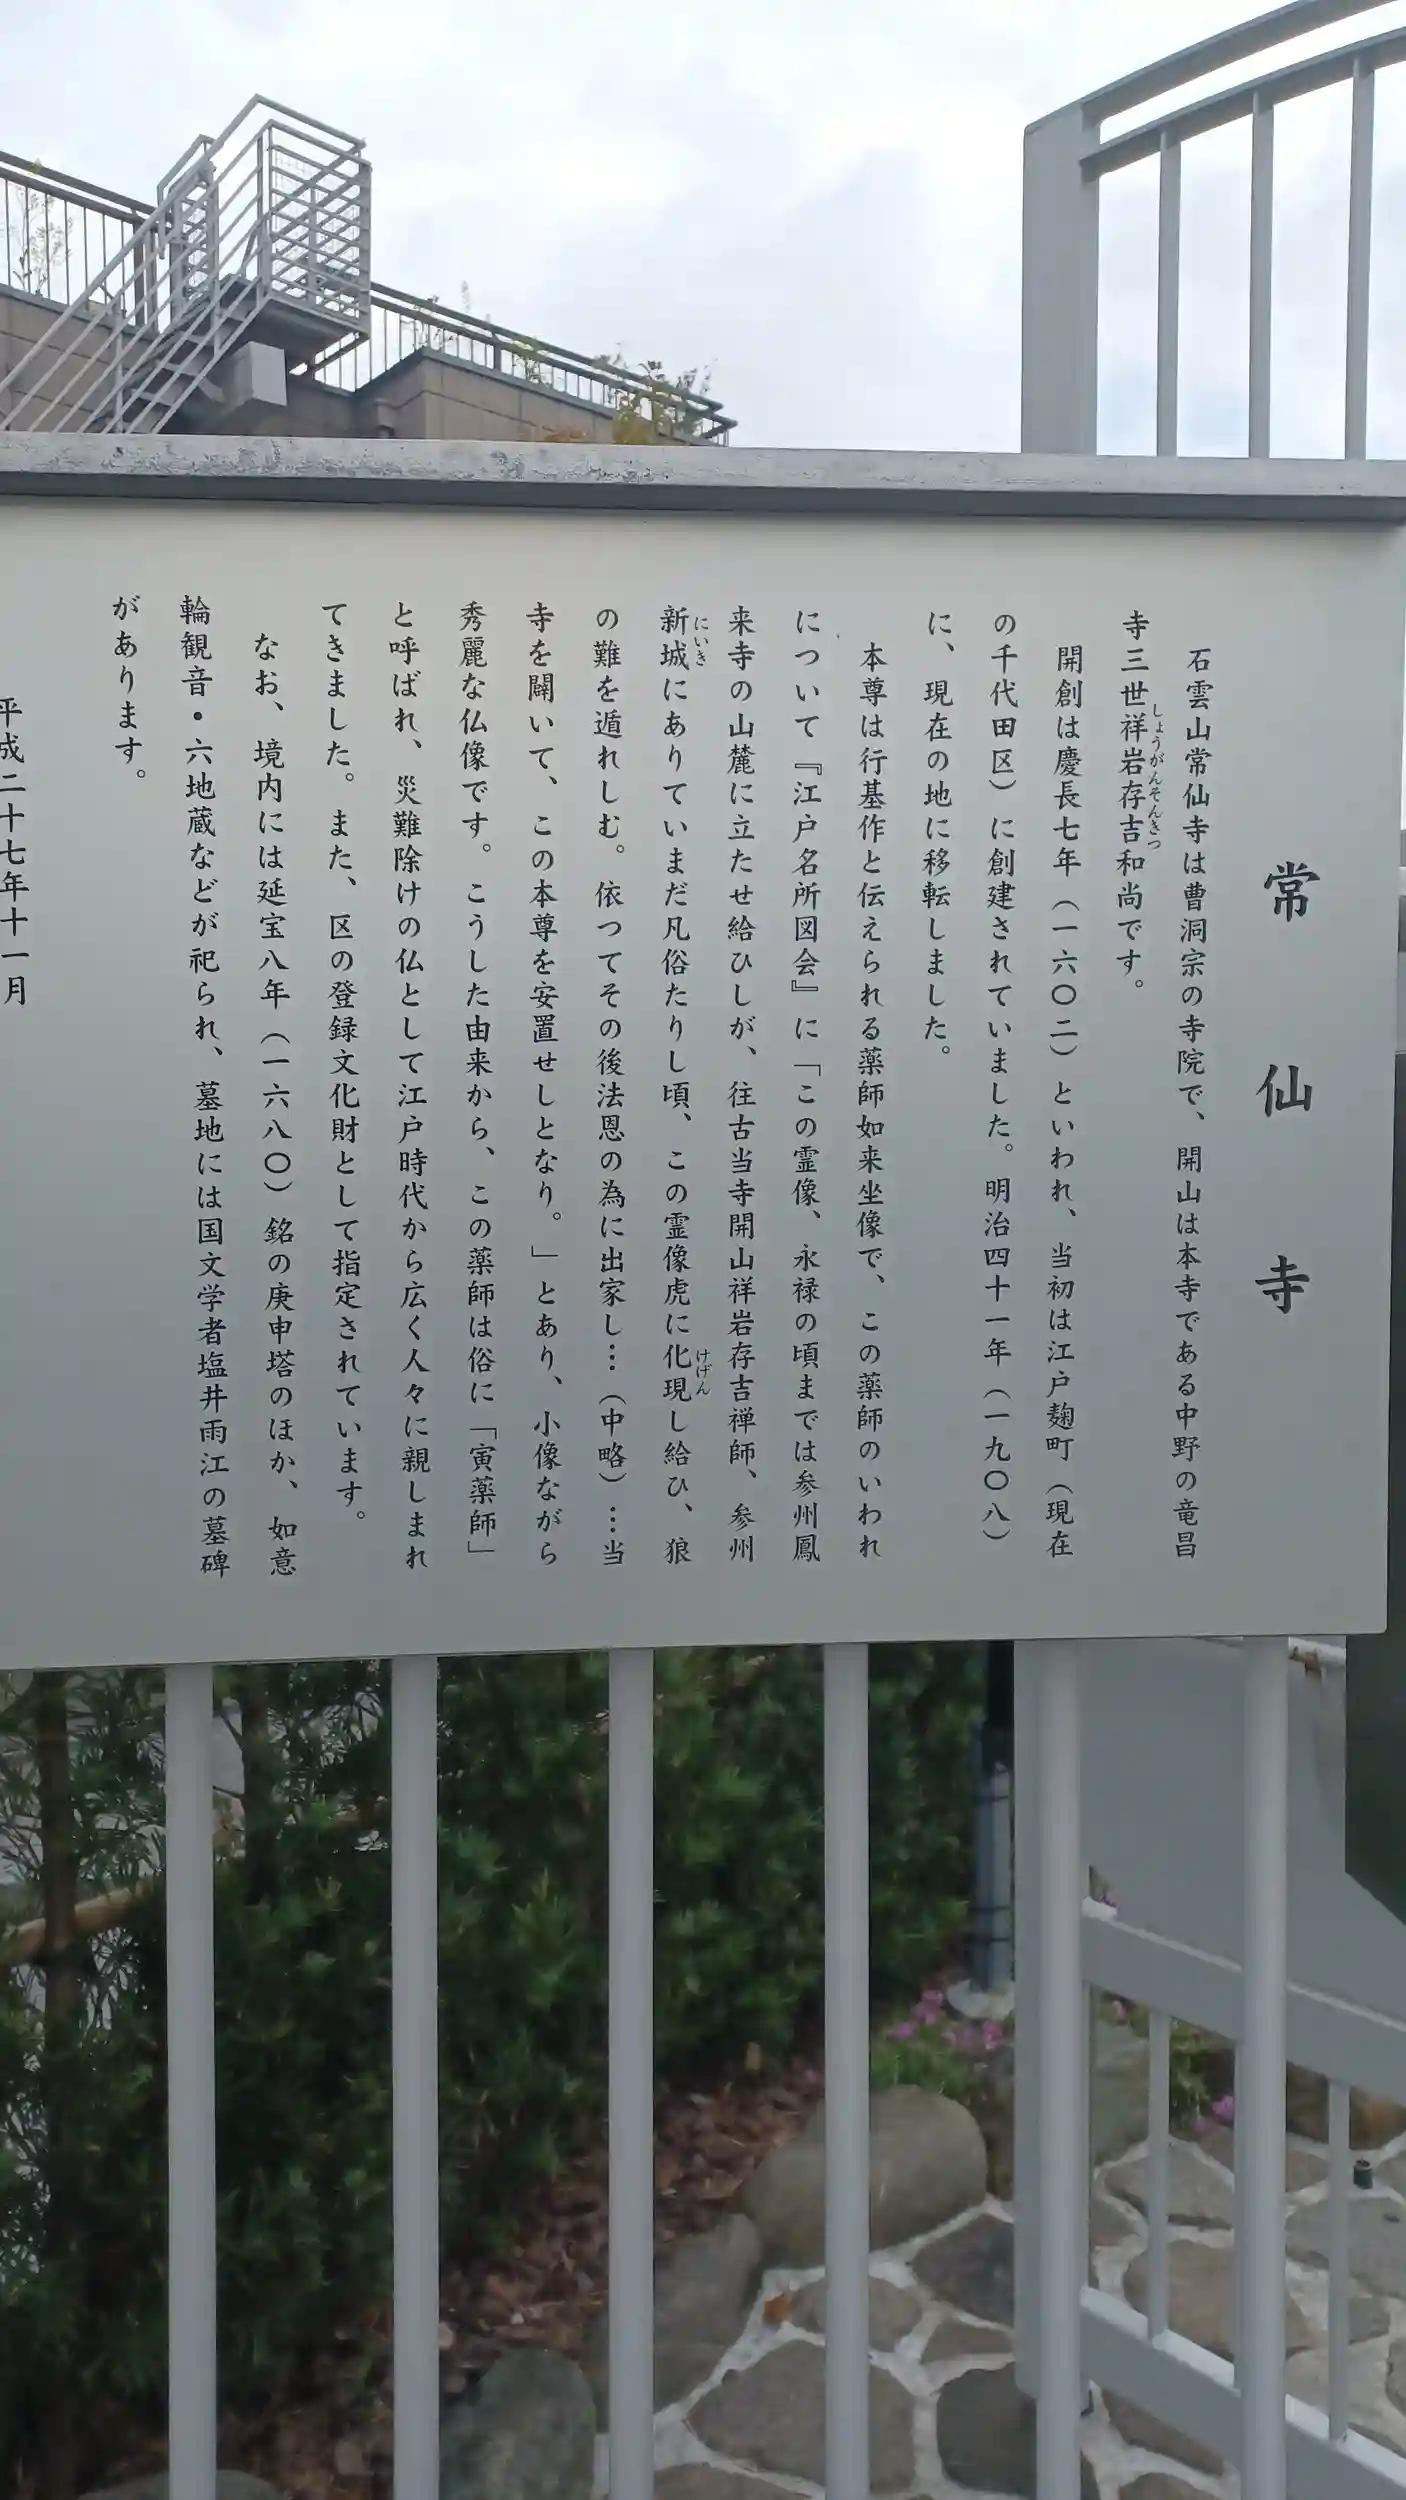 常仙寺
石雲山常仙寺は曹洞宗の寺院で、開山は本寺である中野の竜昌
寺三世祥岩存吉和尚です。
しょうがんそんきつ
開創は慶長七年(一六〇二)といわれ、当初は江戸麹町(現在
の千代田区)に創建されていました。明治四十一年(一九〇八)
に、現在の地に移転しました。
本尊は行基作と伝えられる薬師如来坐像で、この薬師のいわれ
について『江戸名所図会』に「この霊像、永禄の頃までは参州鳳
来寺の山麓に立たせ給ひしが、往古当寺開山祥岩存吉禅師、参州
新城にありていまだ凡俗たりし頃、この霊像虎に化現し給ひ、狼
にいき
けげん
の難を遁れしむ。依つてその後法恩の為に出家し…(中略)…当
寺を闢いて、この本尊を安置せしとなり。」とあり、小像ながら
秀麗な仏像です。こうした由来から、この薬師は俗に「寅薬師」
と呼ばれ、災難除けの仏として江戸時代から広く人々に親しまれ
てきました。また、区の登録文化財として指定されています。
なお、境内には延宝八年(一六八〇)銘の庚申塔のほか、如意
輪観音・六地蔵などが祀られ、墓地には国文学者塩井雨江の墓碑
があります。
平成二十七年十一月